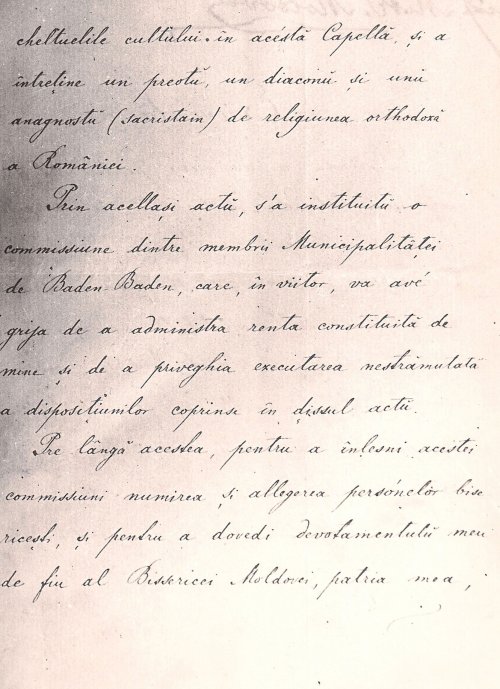 cheltuelile cultului în acéstă Capellă, și a
întreține un preotŭ, un diaconŭ și unŭ
anagnostŭ (sacristain) de religiunea orthodoxă
a României.
Prin acellași actŭ, s'a instituitŭ o
commissiune dintre membrii Municipalităței
de Baden-Baden, care, în viitor, va avé
grija de a administra renta constituită de
mine și de a priveghia executarea nestrămutată
a dispozițiunilor coprinse în dissul actŭ.
Pre lângă acestea, pentru a înlesni acestei
commissiuni numirea și allegerea persónelor bise
ricești, și pentru a dovedi devotamentulŭ meu
de fiu al Bissericei Moldovei, patria mea,